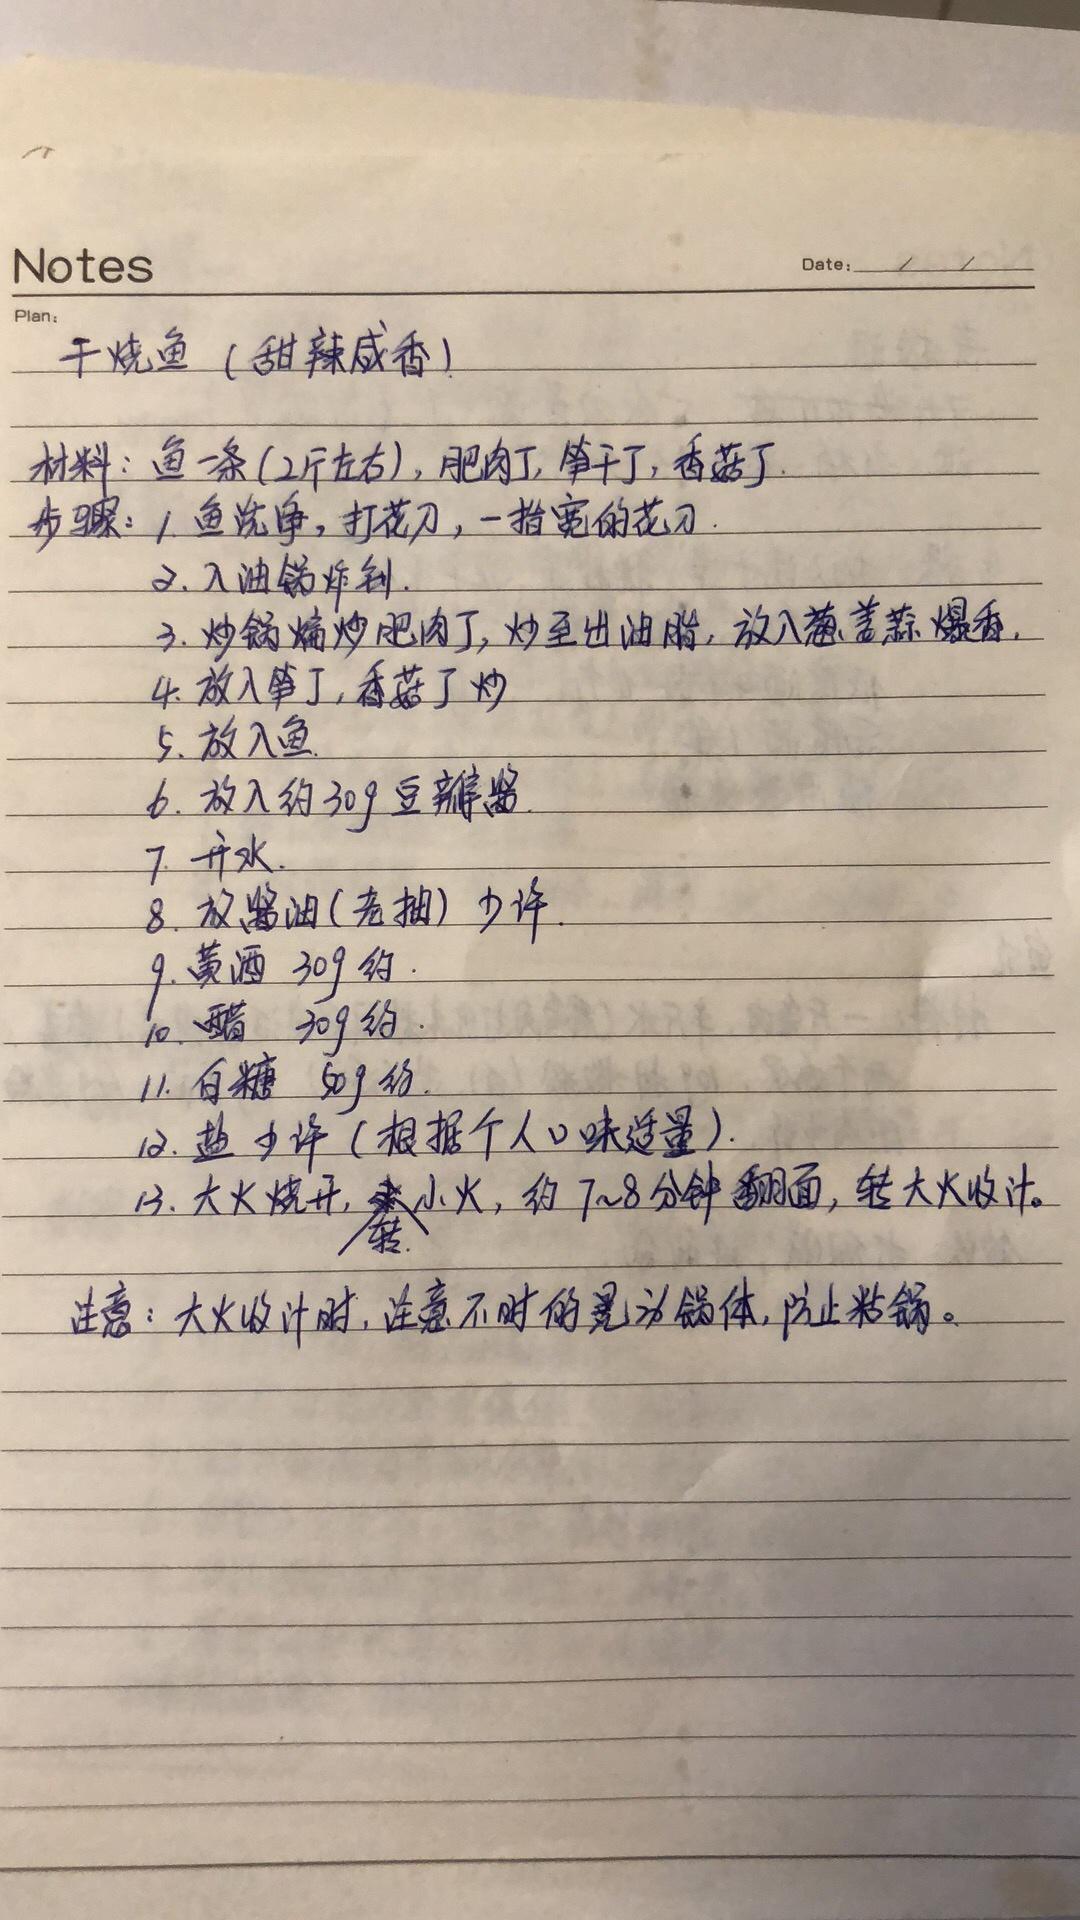 Notes
Date: / /
Plan:
干烧鱼（甜辣咸香）
材料：鱼一条（2斤左右），肥肉丁，笋干丁，香菇丁.
步骤：1. 鱼洗净，打花刀，一指宽的花刀.
2. 入油锅炸制.
3. 炒锅煸炒肥肉丁，炒至出油脂，放入葱姜蒜爆香.
4. 放入笋丁，香菇丁炒
5. 放入鱼.
6. 放入约30g豆瓣酱.
7. 开水.
8. 放酱油（老抽）少许.
9. 黄酒 30g约.
10. 醋 30g约.
11. 白糖 50g约.
12. 盐少许（根据个人口味适量）.
13. 大火烧开，转小火，约7~8分钟翻面，转大火收汁。
注意：大火收汁时，注意不时的晃动锅体，防止粘锅。